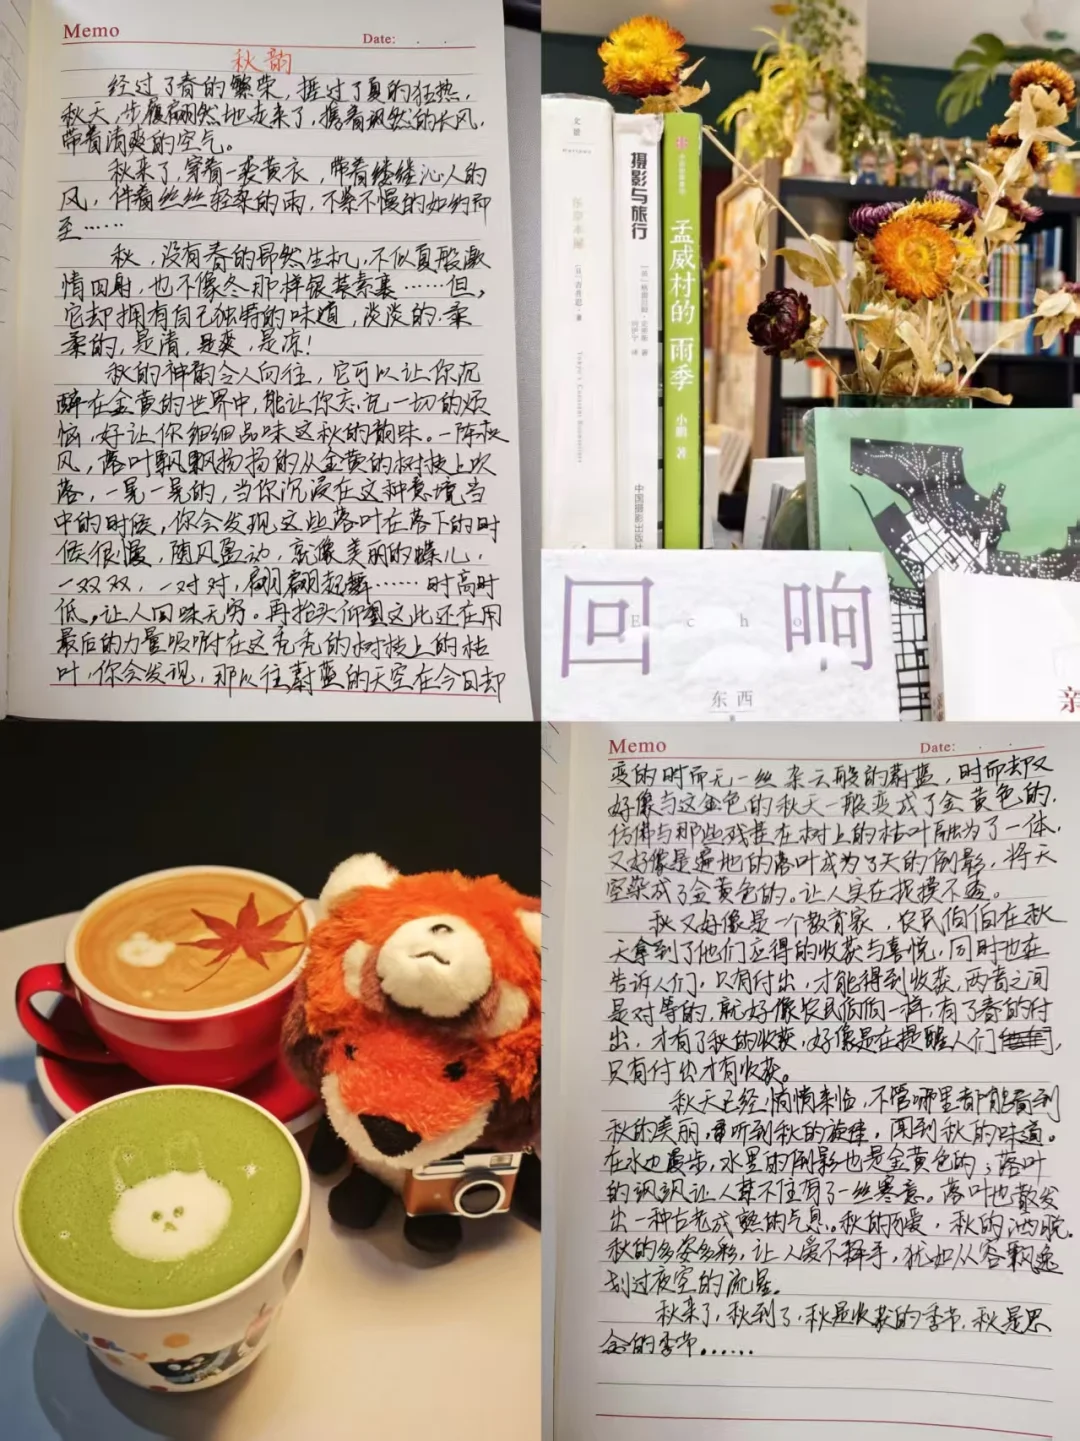 Memo
Date:
秋韵
经过了春的繁荣，捱过了夏的狂热，
秋天，步履翩然地走来了，携着飒然的长风，
带着清爽的空气。
秋来了，穿着一袭黄衣，带着缕缕沁人的
风，伴着丝丝轻柔的雨，不紧不慢的如约而
至……
秋，没有春的昂然生机，不似夏般激
情四射，也不像冬那样银装素裹……但，
它却拥有自己独特的味道，淡淡的，柔
柔的，是清，是爽，是凉！
秋的神韵令人向往，它可以让你沉
醉在金黄的世界中，能让你忘记一切的烦
恼，好让你细细品味这秋的韵味。一阵秋
风，落叶飘飘扬扬的从金黄的树枝上吹
落，一晃一晃的，当你沉浸在这种意境当
中的时候，你会发现这些落叶在落下的时
候很慢，随风盈动，就像美丽的蝶儿，
一双双，一对对，翩翩起舞……时高时
低，让人回味无穷。再抬头仰望这此还在用
最后的力量吸附在这秃秃的树枝上的枯
叶，你会发现，那以往蔚蓝的天空在今日却
文景
Horizon
东京本屋
[日]吉井忍·著
Tokyo's Constant Booksellers
摄影与旅行
著
译
中国摄影出版社
中信出版集团
孟威村的雨季
小鹏 著
回响
Echo
东西
著
亲
Memo
Date:
变的时而无一丝杂云般的蔚蓝，时而却又
好像与这金色的秋天一般变成了金黄色的，
仿佛与那些残挂在树上的枯叶融为了一体，
又好像是遍地的落叶成为了天的倒影，将天
空染成了金黄色的。让人实在捉摸不透。
秋又好像是一个教育家，农民伯伯在秋
天拿到了他们应得的收获与喜悦，同时也在
告诉人们，只有付出，才能得到收获，两者之间
是对等的，就好像农民伯伯一样，有了春的付
出，才有了秋的收获，好像是在提醒人们，
只有付出才有收获。
秋天已经悄悄来临，不管哪里都能看到
秋的美丽，听到秋的旋律，闻到秋的味道。
在水边漫步，水里的倒影也是金黄色的；落叶
的飒飒让人禁不住有了一丝寒意。落叶也散发
出一种古老成熟的气息。秋的可爱，秋的洒脱，
秋的多姿多彩，让人爱不释手，犹如从容飘逸
划过夜空的流星。
秋来了，秋到了，秋是收获的季节，秋是思
念的季节……